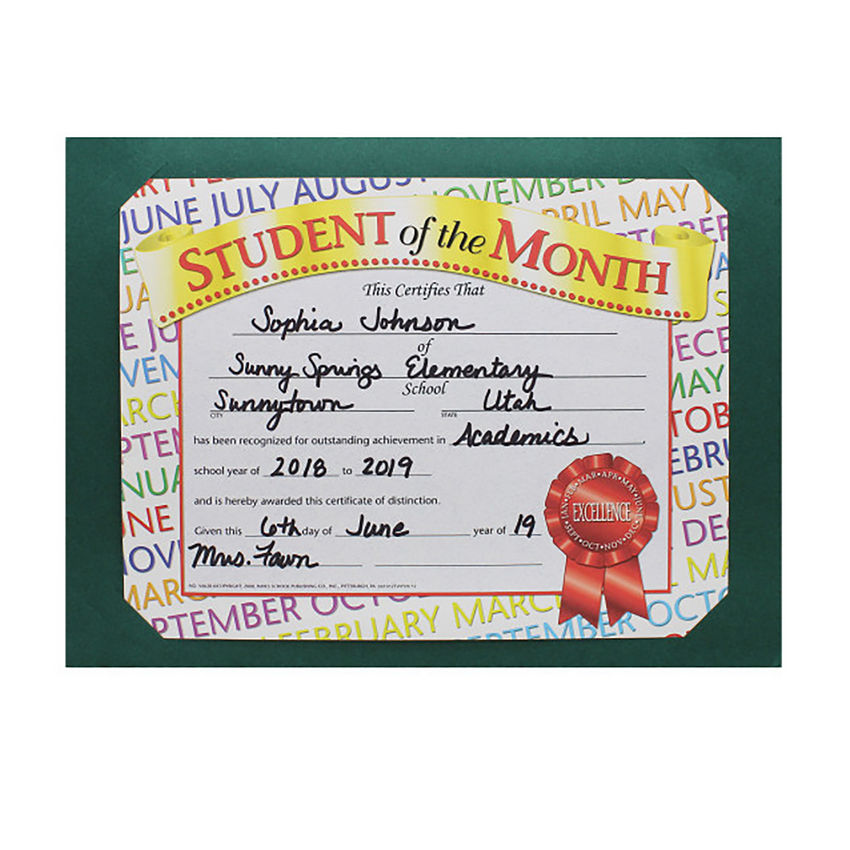 RY FE
JUNE JULY AUGUST
NOVEMBER D
APRIL MAY J
STUDENT of the MONTH
This Certifies That
Sophia Johnson
of
Sunny Springs Elementary
School
Sunnytown Utah
CITY STATE
has been recognized for outstanding achievement in Academics
school year of 2018 to 2019
and is hereby awarded this certificate of distinction.
Given this 6th day of June year of 19
Mrs. Fawn
JAN•FEB•MAR•APR•MAY•JUNE
EXCELLENCE
SEPT•OCT•NOV•DEC
E JU
VEN
ARCH
PTEM
NUA
UNE
NOV
MAR
ECE
MAY
TOB
EBRU
UST
DE
MA
PTEMBER OCTO
FEBRUARY MARCH
SEPTEMBER OCTO